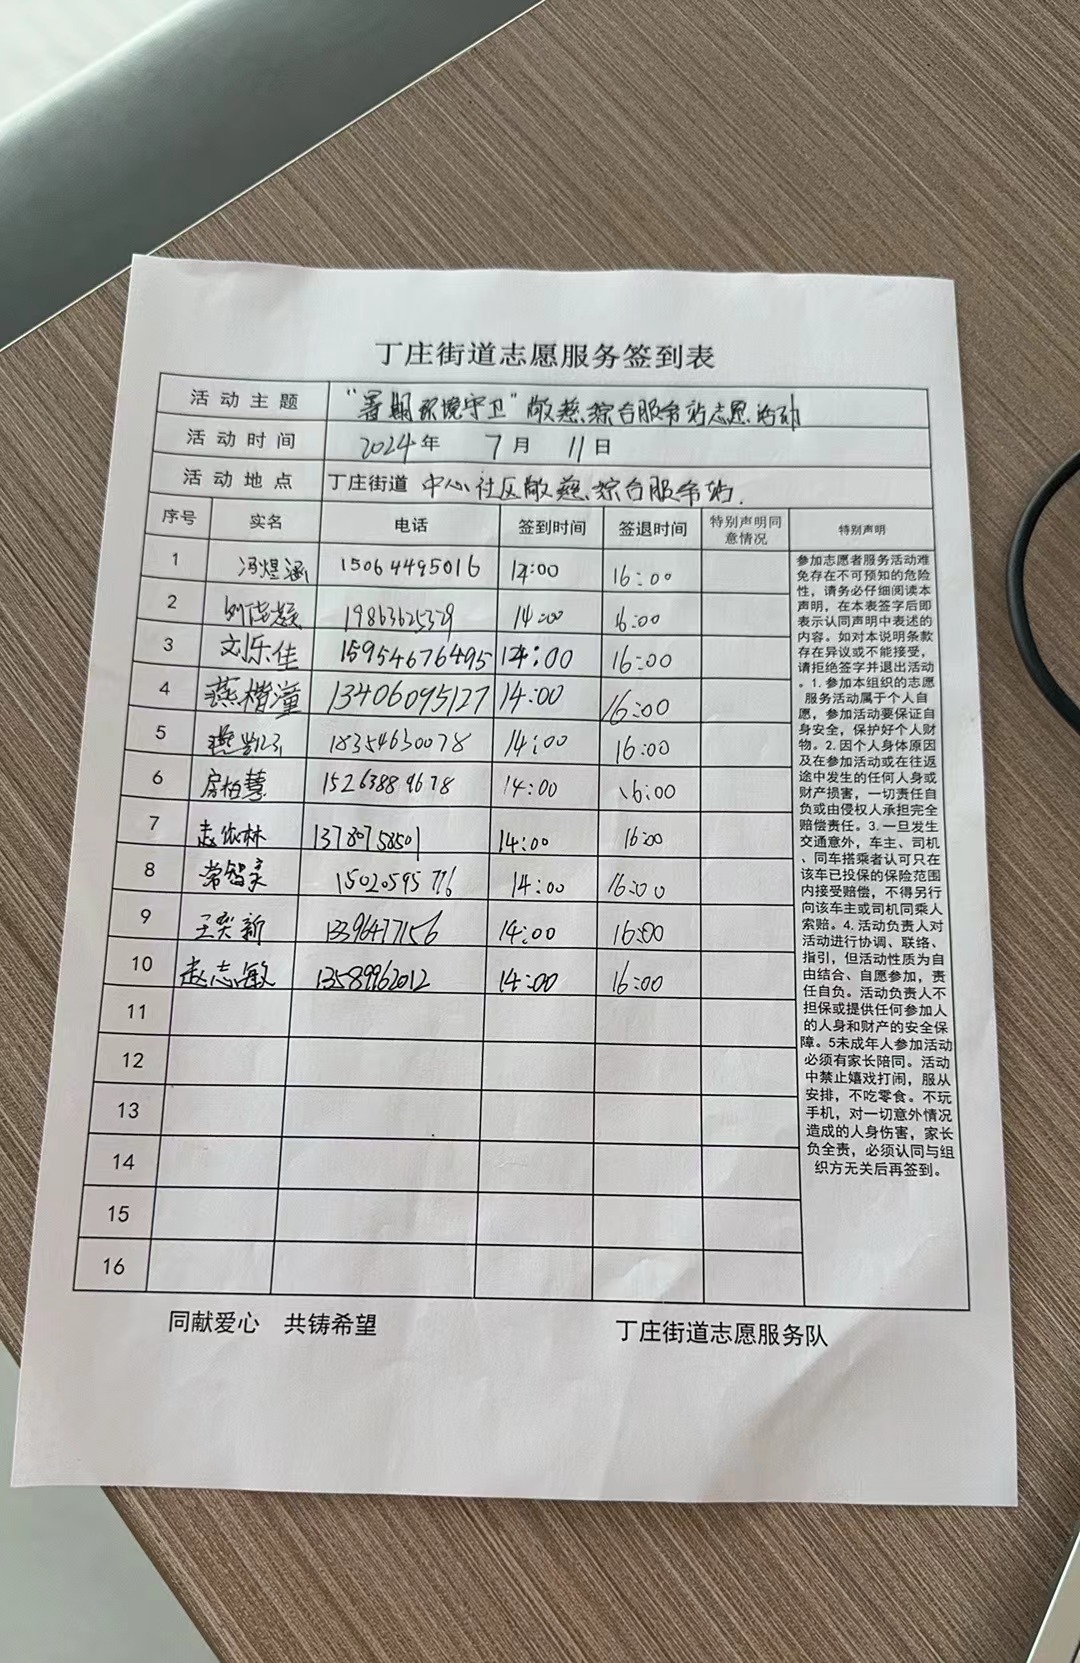 丁庄街道志愿服务签到表
活动主题 "暑期环境守卫"敬慈综合服务站志愿活动
活动时间 2024年 7月 11日
活动地点 丁庄街道 中心社区敬慈综合服务站.
序号 实名 电话 签到时间 签退时间 特别声明同意情况 特别声明
1 冯煜涵 15064495016 14:00 16:00
2 19863625329 14:00 16:00
3 刘乐佳 15954676495 14:00 16:00
4 燕楷潼 13406095127 14:00 16:00
5 18354630078 14:00 16:00
6 房柏慧 15263889678 14:00 16:00
7 13789758501 14:00 16:00
8 常智 14:00 16:00
9 王奕新 13396477156 14:00 16:00
10 赵志敏 13589962012 14:00 16:00
11
12
13
14
15
16
参加志愿者服务活动难
免存在不可预知的危险
性，请务必仔细阅读本
声明，在本表签字后即
表示认同声明中表述的
内容。如对本说明条款
存在异议或不能接受，
请拒绝签字并退出活动
。1.参加本组织的志愿
服务活动属于个人自
愿，参加活动要保证自
身安全，保护好个人财
物。2.因个人身体原因
及在参加活动或在往返
途中发生的任何人身或
财产损害，一切责任自
负或由侵权人承担完全
赔偿责任。3.一旦发生
交通意外，车主、司机
、同车搭乘者认可只在
该车已投保的保险范围
内接受赔偿，不得另行
向该车主或司机同乘人
索赔。4.活动负责人对
活动进行协调、联络、
指引，但活动性质为自
由结合、自愿参加，责
任自负。活动负责人不
担保或提供任何参加人
的人身和财产的安全保
障。5未成年人参加活动
必须有家长陪同。活动
中禁止嬉戏打闹，服从
安排，不吃零食。不玩
手机，对一切意外情况
造成的人身伤害，家长
负全责，必须认同与组
织方无关后再签到。
同献爱心 共铸希望
丁庄街道志愿服务队